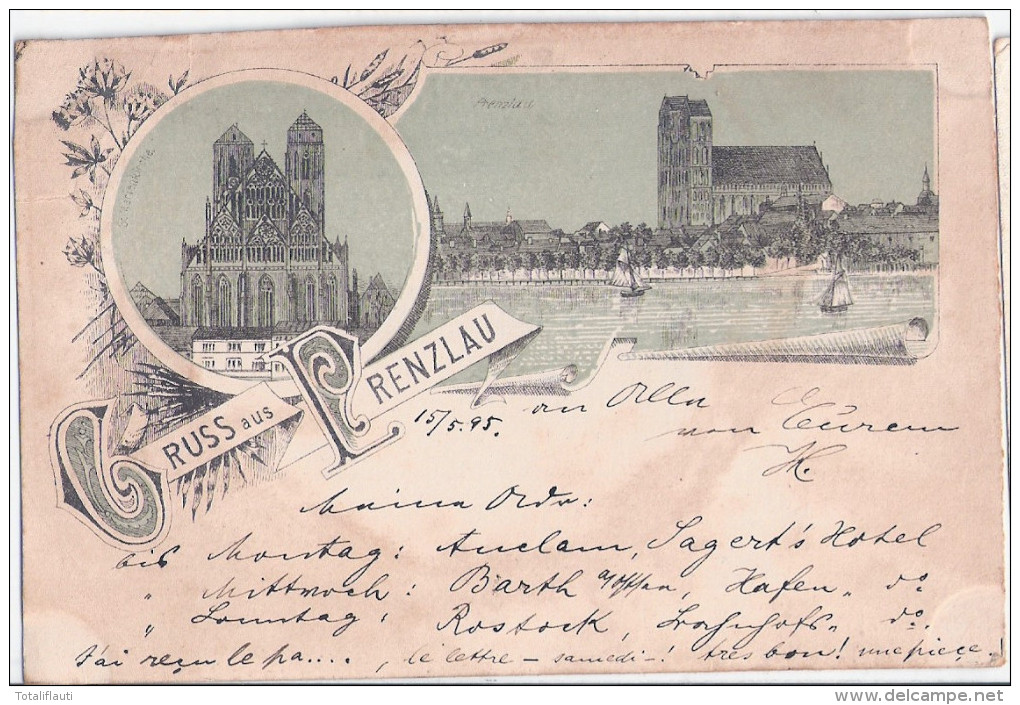 St. Marienkirche.
Prenzlau
GRUSS aus PRENZLAU
15/5.95. an Alle
von Eurem
H.
Meine Adr:
bis Montag: Anclam, Sagert's Hotel
" Mittwoch: Barth a/Ostsee, Hafen " do
" Sonntag: Rostock, Bahnhofs " do.
J'ai reçu le pa...., la lettre – samedi –! très bon! une pièce!
Totaliflauti
www.delcampe.net